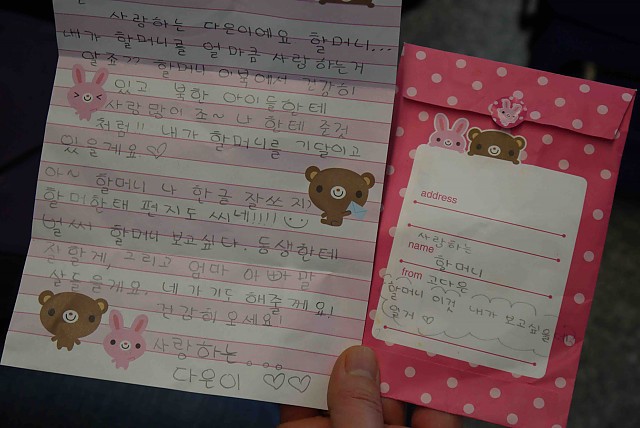 사랑하는 다은이에요 할머니...
내가 할머니를 얼마큼 사랑하는거
알죠?? 할머니 이북에서 건강히
있고 북한 아이들한테
사랑많이 죠~ 나 한테 준것
처럼!! 내가 할머니를 기달이고
있을게요♡
아~ 할머니 나 한글 잘쓰지?
할머한태 편지도 씨네!!!!
벌써 할머니 보고싶다. 동생한테
신할게, 그리고 엄마 아빠 말
잘들을게요. 네가기도해줄게요!
건강히 오세요!
사랑하는....
다은이 ♡♡
address
name 사랑하는
할머니
from 고다은
할머니 이것 내가 보고싶을
열거 ♡